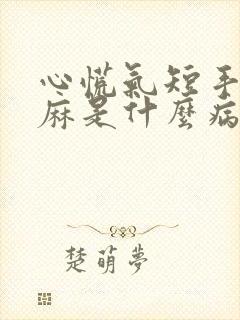 心慌氣短手
麻是什麼病
楚萌夢